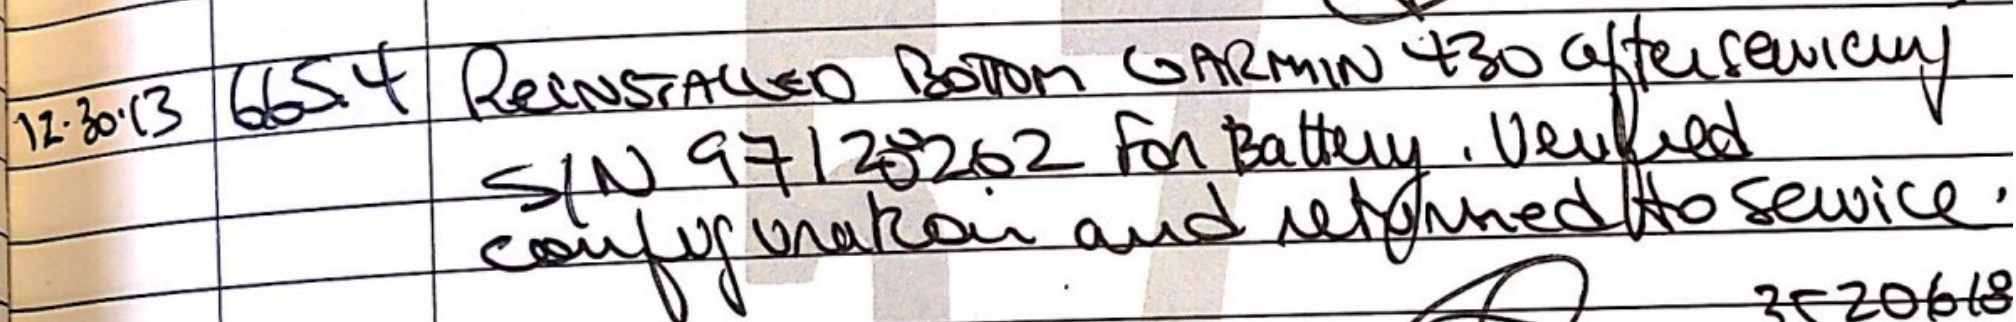 12.30.13 665.4 REINSTALLED BOTTOM GARMIN 430 after servicing
S/N 97120262 For Battery. Verified
configuration and returned to service.
3520618